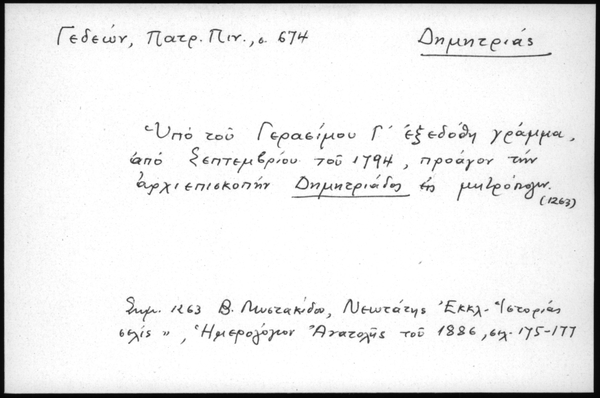 Γεδεών, Πατρ. Πιν., σ. 674
Δημητριάς
Ὑπό τοῦ Γερασίμου Γ΄ ἐξεδόθη γράμμα,
ἀπό Σεπτεμβρίου τοῦ 1794, προάγον τήν
ἀρχιεπισκοπήν Δημητριάδος εἰς μητρόπολιν.
(1263)
Σημ. 1263 Β. Μυστακίδου, Νεωτάτης Ἐκκλ. Ἱστορίας
σελίς », Ἡμερολόγιον Ἀνατολῆς τοῦ 1886, σελ. 175-177